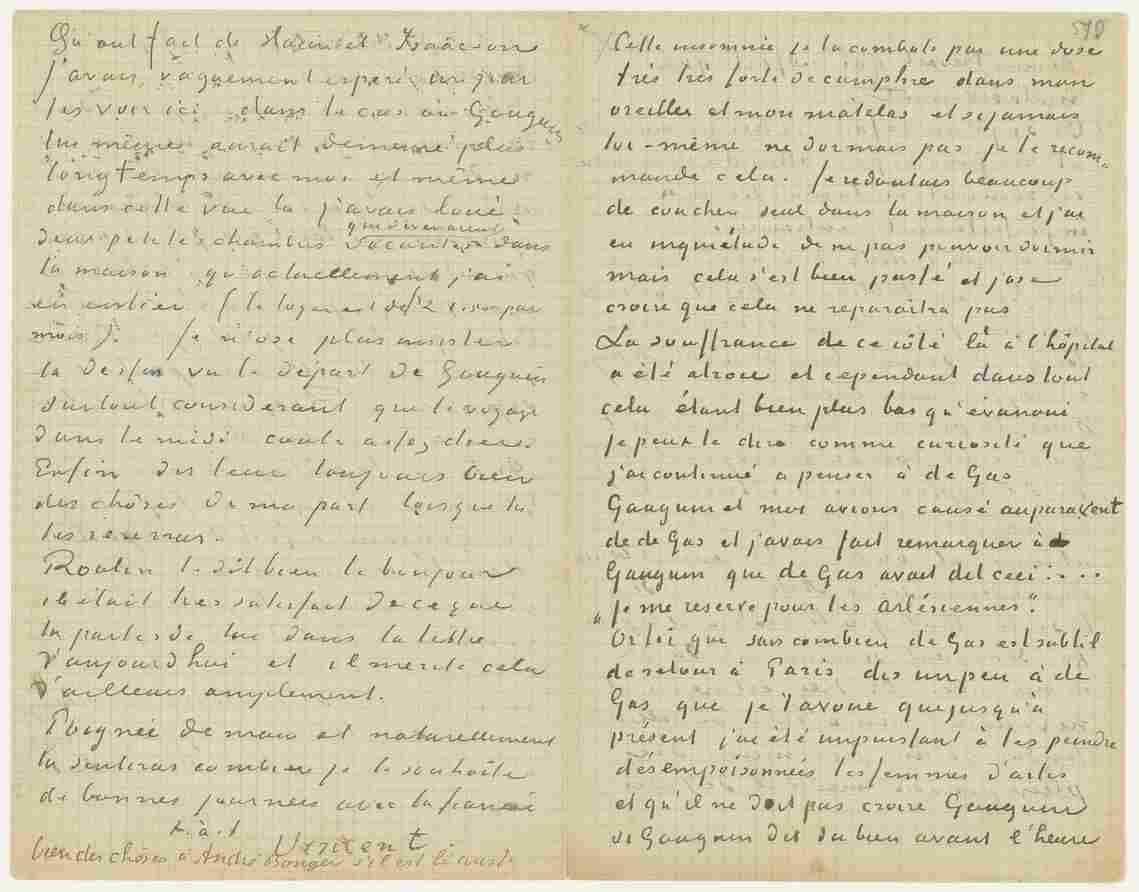 Qu'ont fait de Haan et Isaäcson
j'avais vaguement espéré un jour
les voir ici dans le cas où Gauguin
lui même aurait demeuré plus
longtemps avec moi et même
dans cette vue là j'avais loué
deux petites chambres qui devenaient vacantes dans
la maison qu'actuellement j'ai
en entier (le loyer est de 21.50 par
mois). Je n'ose plus insister
là dessus vu le départ de Gauguin
surtout considérant que le voyage
dans le midi coute assez cher.
Enfin dis leur toujours bien
des choses de ma part lorsque tu
les reverras.
Roulin te dit bien le bonjour
il était très satisfait de ce que
tu parles de lui dans ta lettre
d'aujourd'hui et il mérite cela
d'ailleurs amplement.
Poignée de main et naturellement
tu sentiras combien je te souhaite
de bonnes journées avec ta fiancée
t. à. t
Vincent
bien des choses à André Bonger s'il est là aussi
570
Cette insomnie je la combats par une dose
très très forte de camphre dans mon
oreiller et mon matelas et si jamais
toi-même ne dormais pas je te recom-
mande cela. Je redoutais beaucoup
de coucher seul dans la maison et j'ai
eu inquiétude de ne pas pouvoir dormir
mais cela s'est bien passé et j'ose
croire que cela ne reparaitra pas
La souffrance de ce côté là à l'hôpital
a été atroce et cependant dans tout
cela étant bien plus bas qu'évanoui
je peux te dire comme curiosité que
j'ai continué à penser à de Gas
Gauguin et moi avions causé auparavent
de de Gas et j'avais fait remarquer à
Gauguin que de Gas avait dit ceci....
„Je me reserve pour les Arlésiennes".
Or toi qui sais combien de Gas est subtil
de retour à Paris dis un peu à de
Gas que je l'avoue que jusqu'à
présent j'ai été impuissant à les peindre
désempoisonnées les femmes d'Arles
et qu'il ne doit pas croire Gauguin
si Gauguin dit du bien avant l'heure